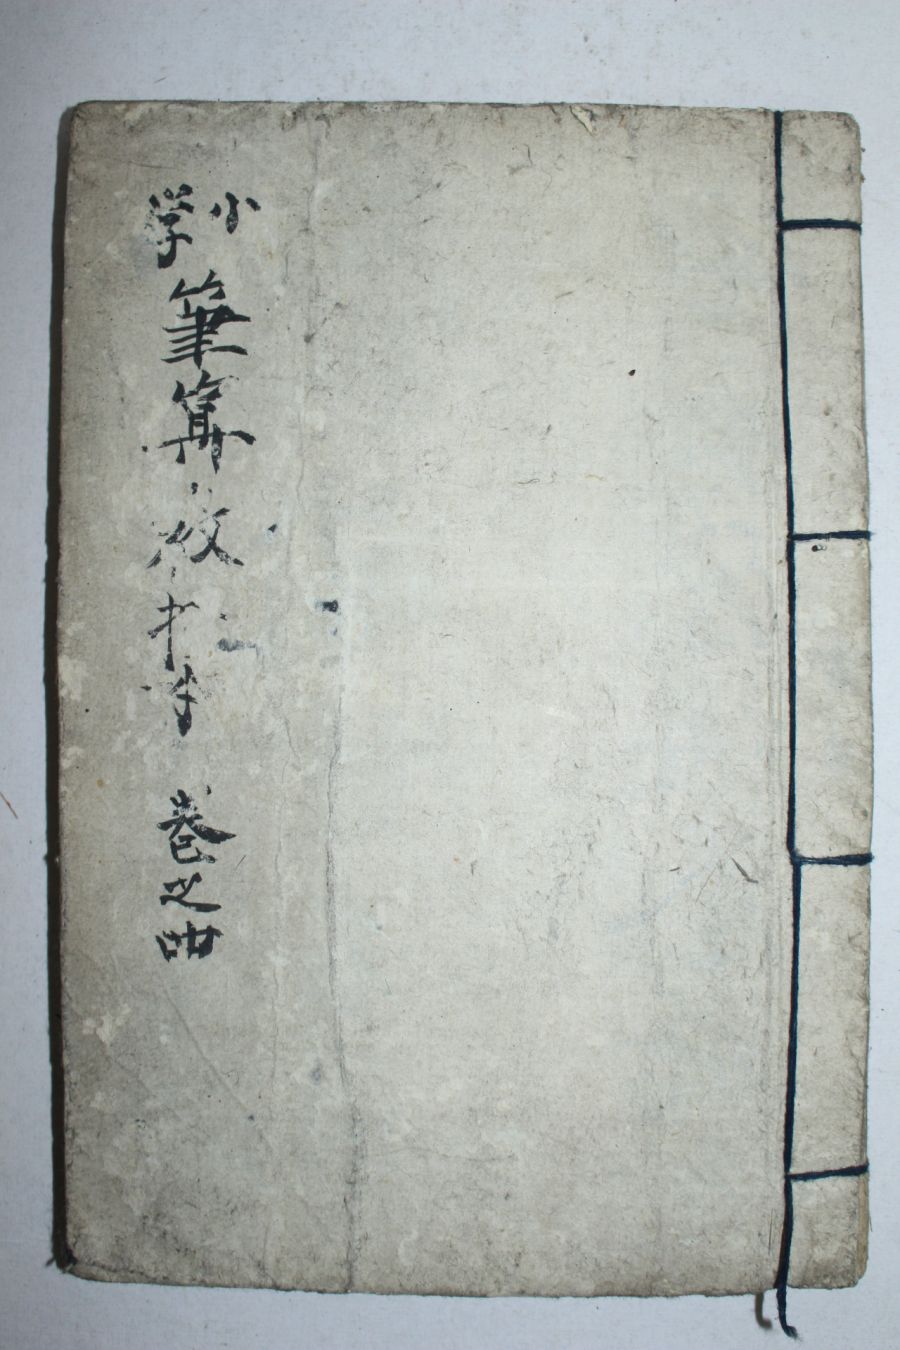 小学
筆算教授書 巻之四